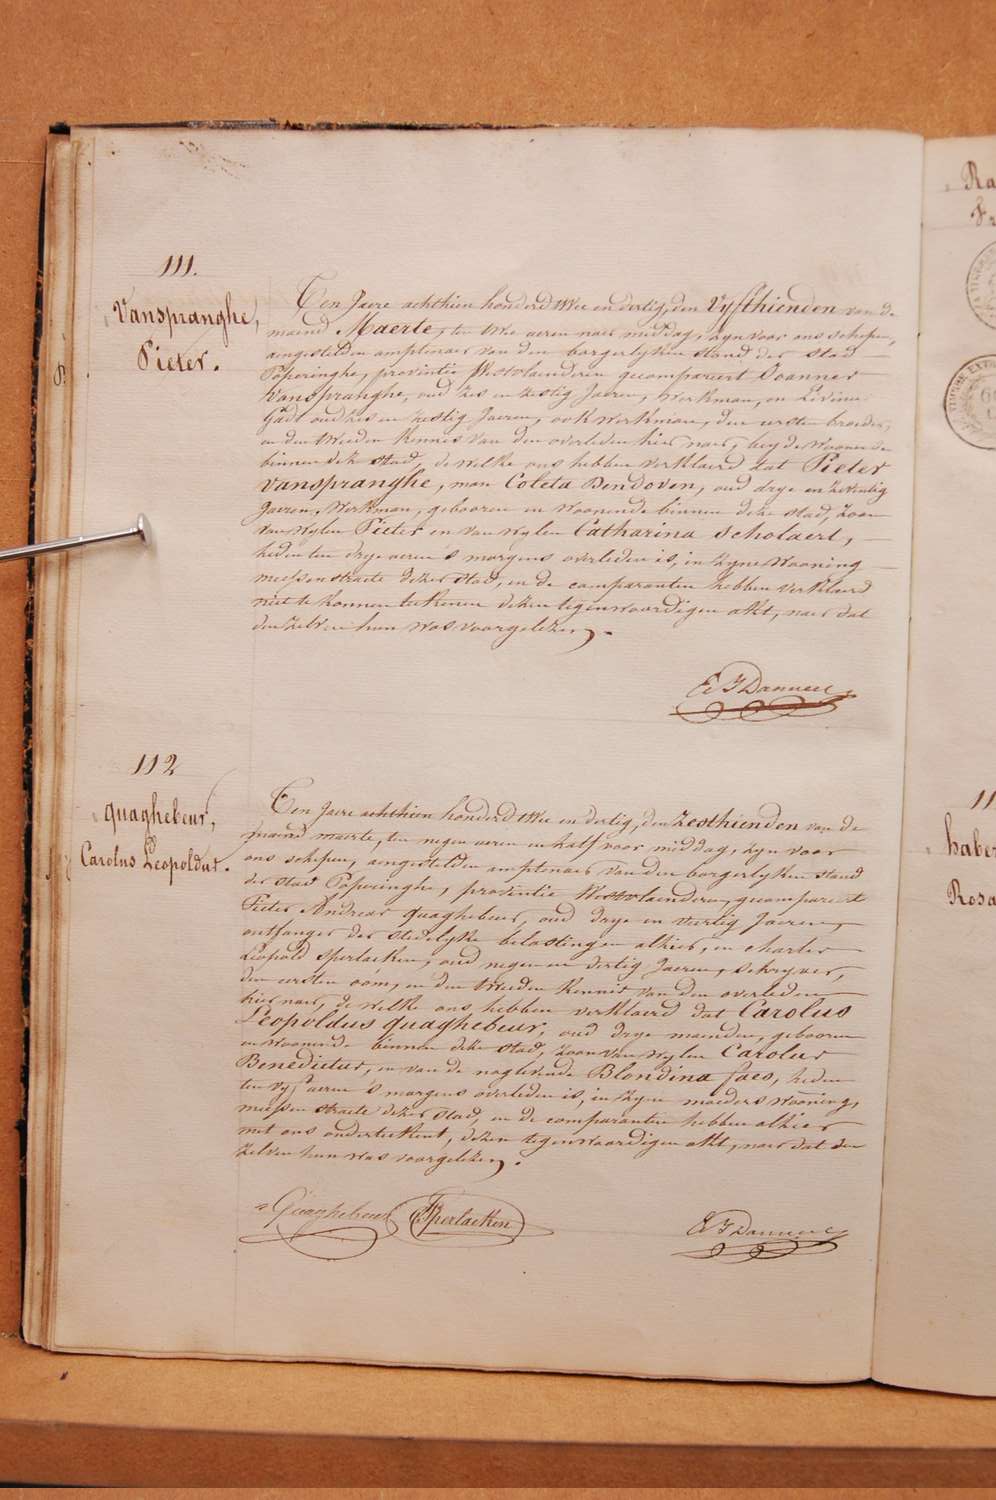 111.
Vanspranghe,
Pieter.
Ten Jaere achthien honderd twee en dertig, den Vyfthienden van de
maend Maerte, ten twee aeren naer middag, zyn voor ons schepen,
aengestelden amptenaer van den borgerlyken stand der stad
Poperinghe, provintie Westvlaenderen gecompareert Joannes
Vanspranghe, oud zes en zestig Jaeren, Werkman, en Livinus
Gads oud zes en zestig Jaeren, ook werkman, den eersten broeder,
en den tweeden kennis van den overleden hier naer, beyde woonende
binnen deze stad, de welke ons hebben verklaerd dat Pieter
Vanspranghe, man Coleta Dendoven, oud drye en zeventig
Jaeren, Werkman, gebooren en woonende binnen deze stad, zoon
van wylen Pieter en van wylen Catharina Scholaert,
heden ten drye aeren 's morgens overleden is, in zyne wooning
meessenstraete dezer stad, en de comparanten hebben verklaerd
niet te konnen teekenen dezen tegenwoordigen akt, naer dat
den zelven hun was voorgelezen.
112
Quaghebeur,
Carolus Leopoldus.
Ten Jaere achthien honderd twee en dertig, den Zesthienden van de
maend maerte, ten negen aeren en half voor middag, zyn voor
ons schepen, aengestelden amptenaer van den borgerlyken stand
der stad Poperinghe, provintie Westvlaenderen, gecompareert
Pieter Andreas Quaghebeur, oud drye en veertig Jaeren,
ontfanger der stedelyke belastingen alhier, en Charles
Leopold Sperlaeken, oud negen en dertig Jaeren, schryver,
den eersten oöm, en den tweeden kennis van den overleden
hier naer, de welke ons hebben verklaerd dat Carolus
Leopoldus Quaghebeur, oud drye maenden, gebooren
en woonende binnen deze stad, zoon van wylen Carolus
Benedictus, en van de naglevende Blondina faes, heden
ten vyf aeren 's morgens overleden is, in zyne moeders wooning,
meessen straete dezer stad, en de comparanten hebben alhier
met ons onderteekent, dezen tegenwoordigen akt, naer dat den
zelven hun was voorgelezen.
Quaghebeur Sperlaeken
Ra
Fr
11
habe
Rosa